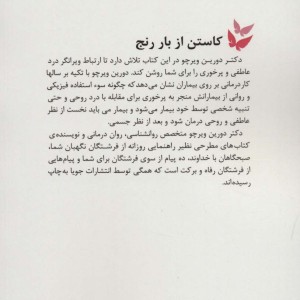 کاستن از بار رنج
دکتـر دورین ویرچو در این کتاب تلاش دارد تا ارتباط ویرانگر درد
عاطفی و پرخوری را برای شما روشن کند. دورین ویرچو با تکیه بر سالها
کاردرمانی بر روی بیماران نشان می‌دهد که چگونه سوء استفاده فیزیکی
و روانی از بیمارانش منجر به پرخوری برای مقابله با درد روحی و حتی
تنبیه شخصی توسط خود بیمار می‌شود و بیمار می باید نخست از نظر
عاطفی و روحی درمان شود و بعد از نظر جسمی.
دکتر دورین ویرچو متخصص روانشناسی، روان درمانی و نویسنده‌ی
کتاب‌های مطرحی نظیر راهنمایی روزانه از فرشتگان نگهبان شما،
صبحگاهان با خداوند، ده پیام از سوی فرشتگان برای شما و پیام‌هایی
از فرشتگان رفاه و برکت است که همگی توسط انتشارات جویا به‌چاپ
رسیده‌اند.